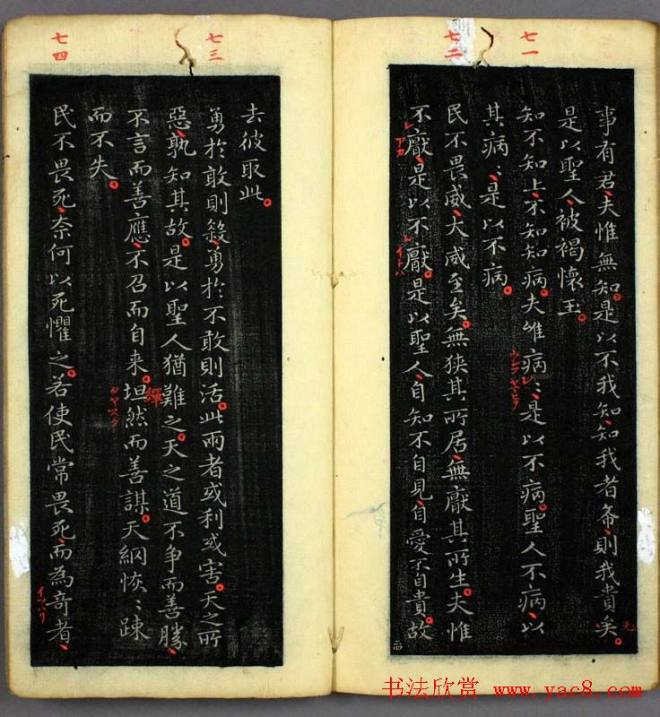 七一
七二
事有君夫惟無知是以不我知知我者希則我貴矣
是以聖人被褐懷玉
知不知上不知知病夫唯病〻是以不病聖人不病以
其病〻是以不病
民不畏威大威至矣無狹其所居無厭其所生夫惟
不厭是以不厭是以聖人自知不自見自愛不自貴故
アカ
イトハ
七三
七四
去彼取此
勇於敢則殺勇於不敢則活此兩者或利或害天之所
惡孰知其故是以聖人猶難之天之道不爭而善勝
不言而善應不召而自来坦然而善謀天網恢〻踈
而不失
民不畏死奈何以死懼之若使民常畏死而為奇者
イツハリ
书法欣赏 www.yac8.com